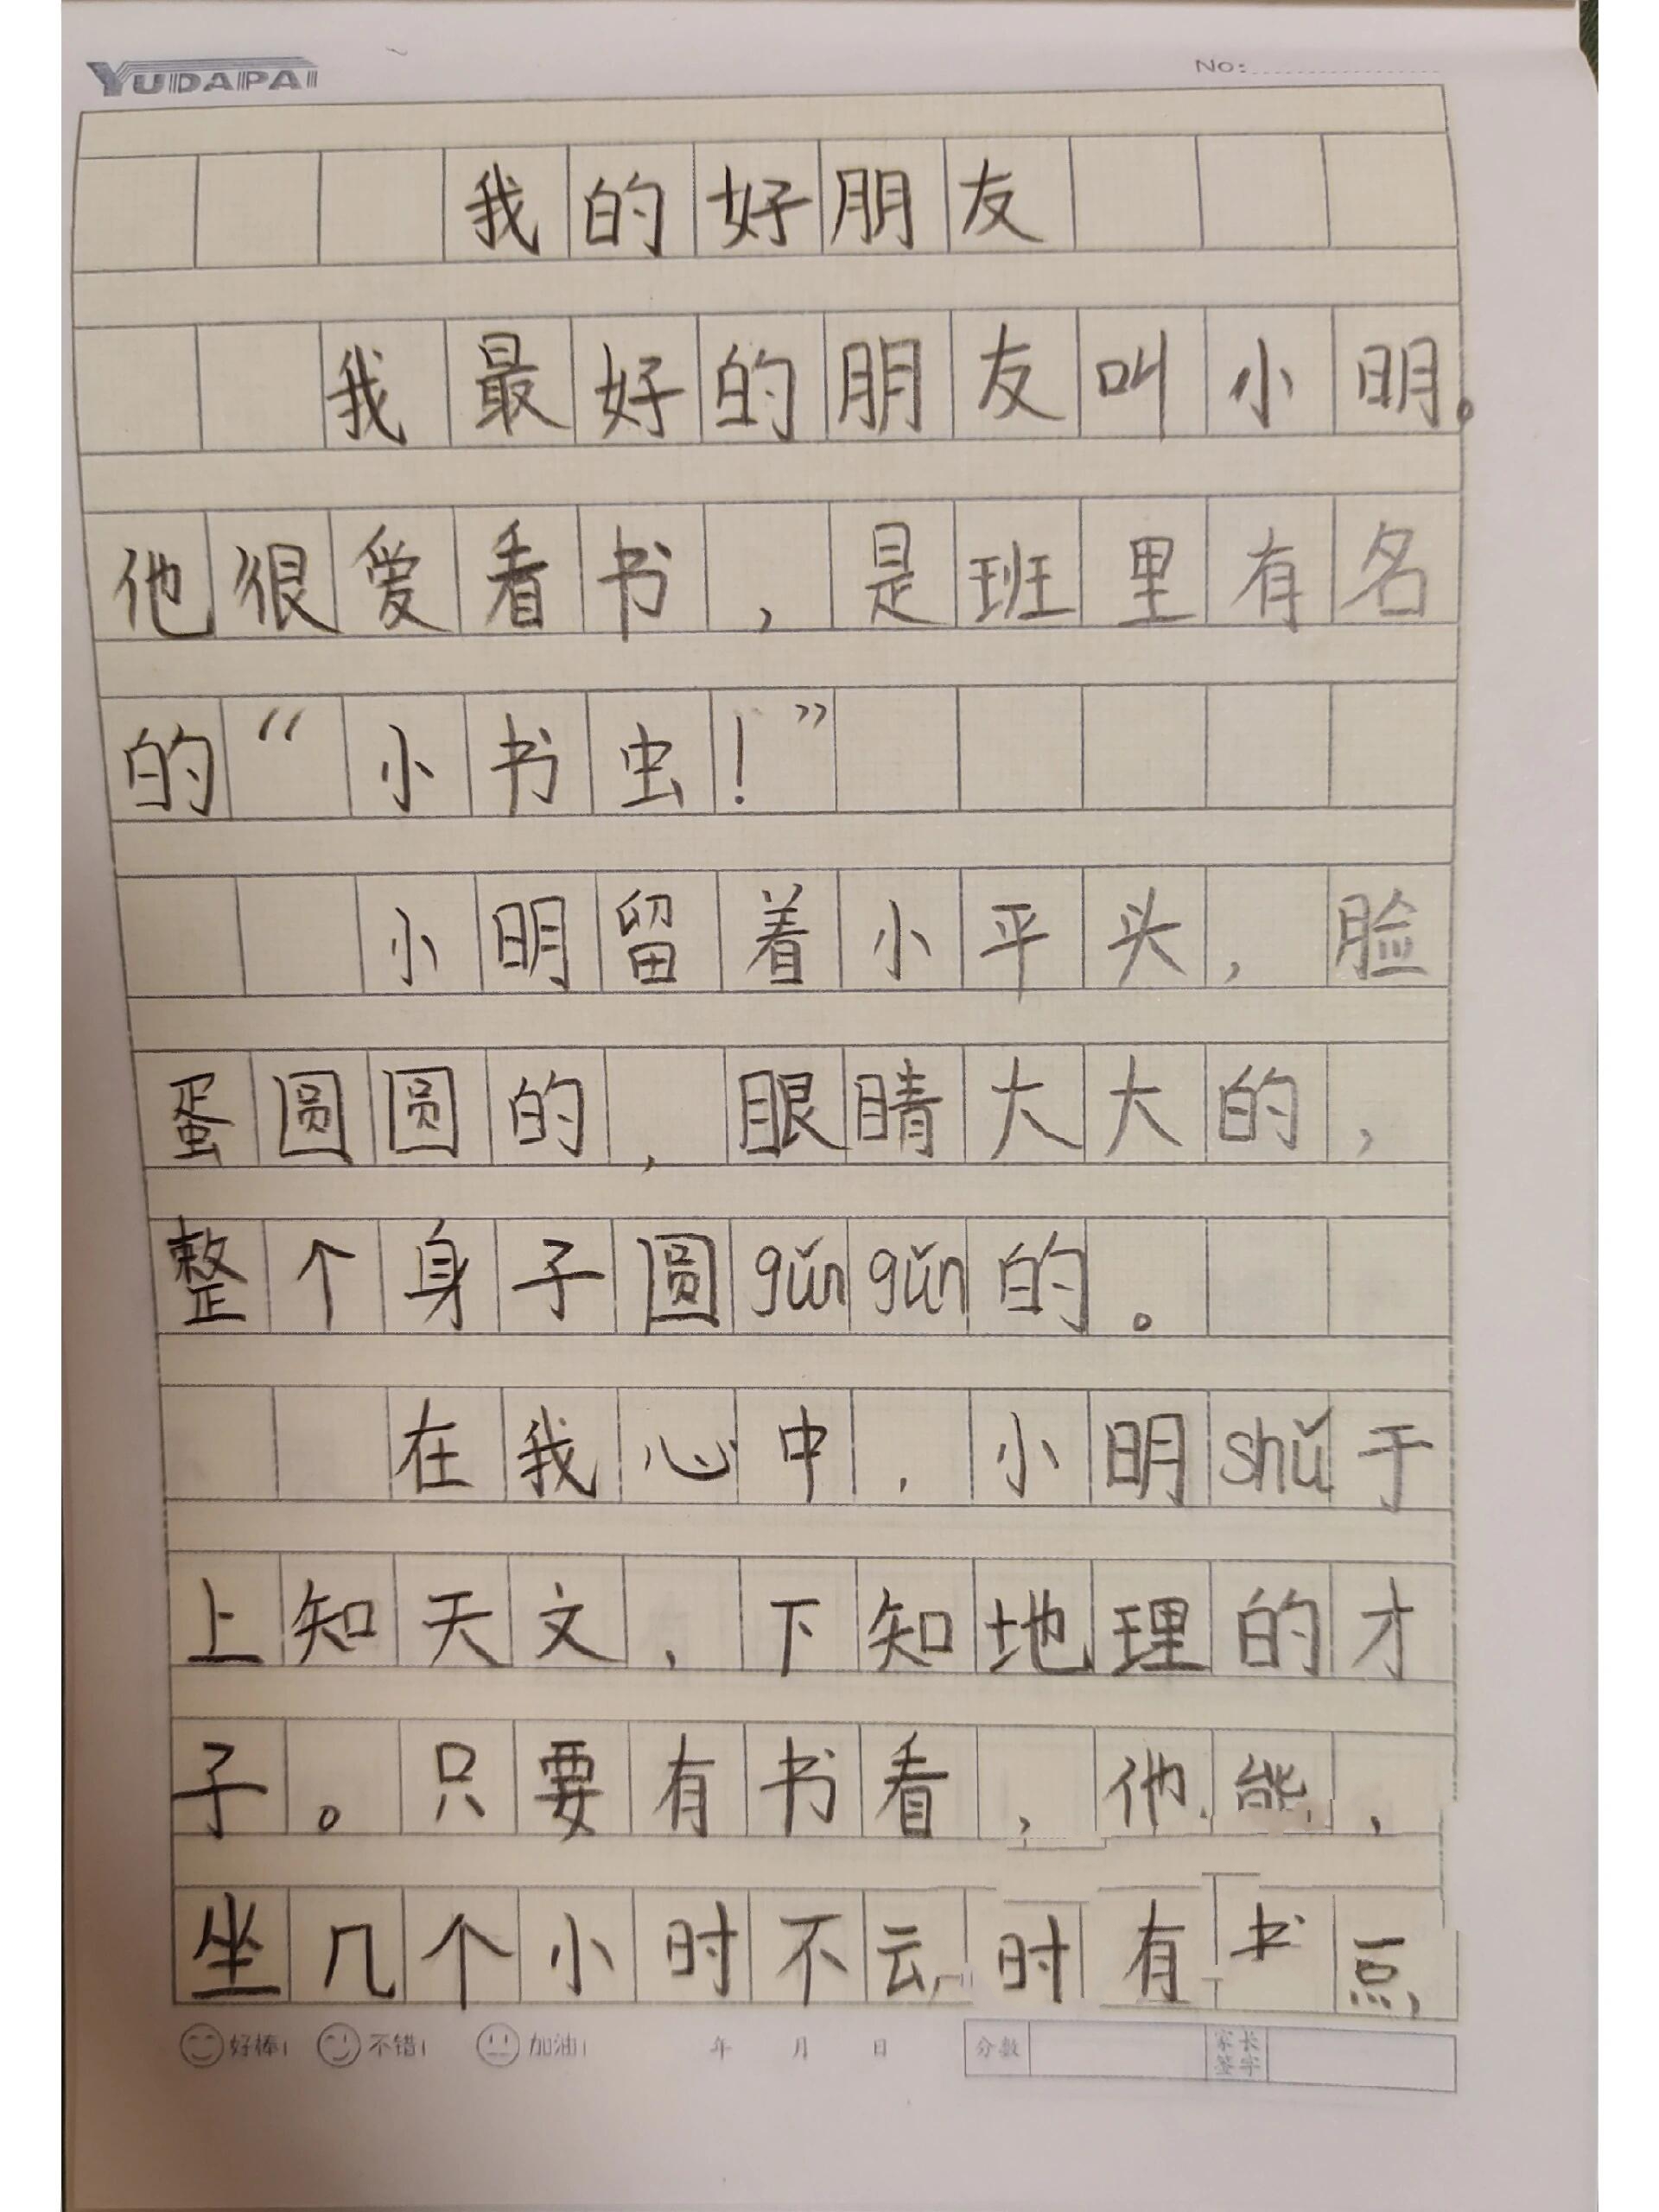 YUDAPAI
No:
我的好朋友
我最好的朋友叫小明。
他很爱看书，是班里有名
的“小书虫！”
小明留着小平头，脸
蛋圆圆的，眼睛大大的，
整个身子圆gǔngǔn的。
在我心中，小明shǔ于
上知天文，下知地理的才
子。只要有书看，他能，
坐几个小时不 时有书
好棒! 不错! 加油! 年 月 日 分数